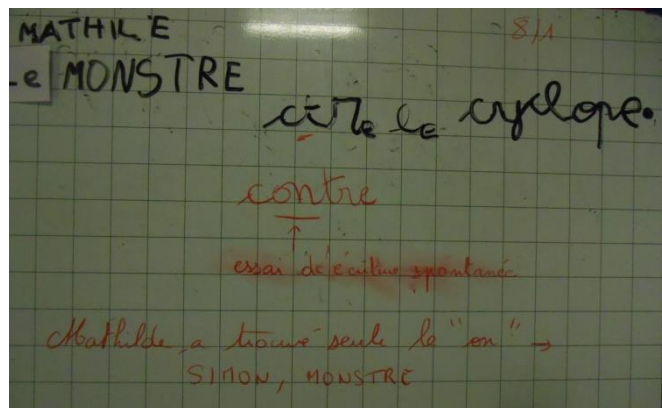 MATHILE
8/1
Le MONSTRE
le cyclope.
contre
essai d'écriture spontanée
Mathilde a trouvé seule le "on" →
SIMON, MONSTRE